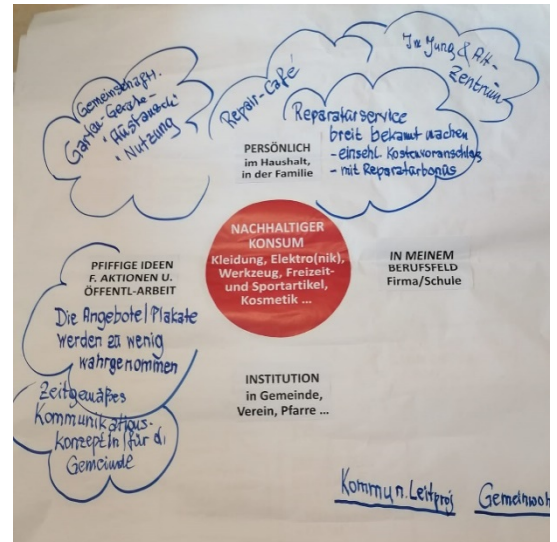 Gemeinschaftl.
Garten-Geräte-
"Austausch"
"Nutzung"
Repair-Café
Im Jung & Alt-
Zentrum
Reparaturservice
breit bekannt machen
- einschl. Kostenvoranschlag
- mit Reparaturbonus
PERSÖNLICH
im Haushalt,
in der Familie
NACHHALTIGER
KONSUM
Kleidung, Elektro(nik),
Werkzeug, Freizeit-
und Sportartikel,
Kosmetik ...
PFIFFIGE IDEEN
F. AKTIONEN U.
ÖFFENTL-ARBEIT
IN MEINEM
BERUFSFELD
Firma/Schule
Die Angebote/Plakate
werden zu wenig
wahrgenommen
Zeitgemäßes
Kommunikations-
konzept in/für d.
Gemeinde
INSTITUTION
in Gemeinde,
Verein, Pfarre ...
Kommun. Leitproj
Gemeinwoh